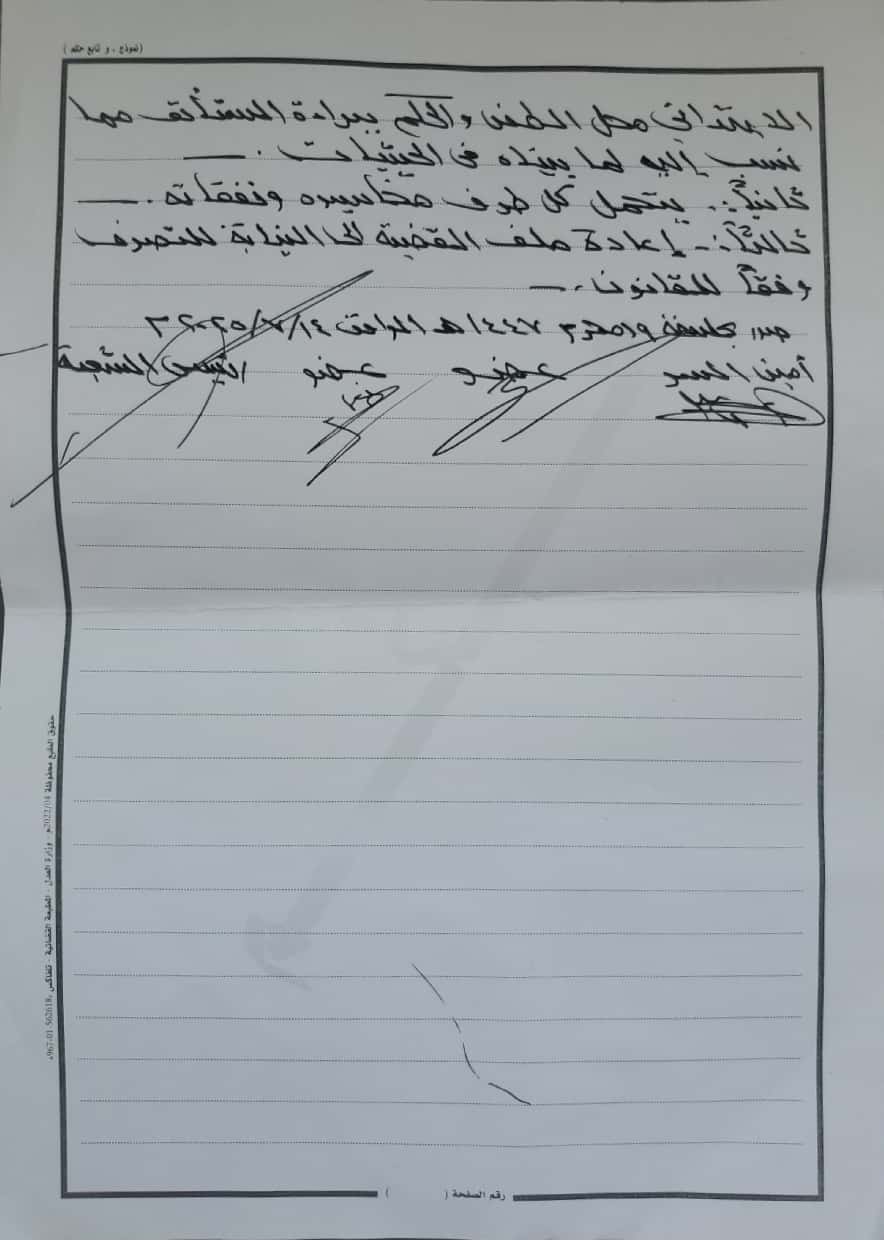 (نموذج . و تابع حكم )
الابتدائي محل الطعن والحكم ببراءة المستأنف مما
نسب إليه لما بيناه في الحيثيات .
ثانياً:. يتحمل كل طرف مخاسيره ونفقاته .
ثالثاً:- إعادة ملف القضية الى النيابة للتصرف
وفقاً للقانون .
صدر بجلسة ١٩ محرم ١٤٤٧هـ الموافق ١٤/٧/٢٠٢٥م
أمين السر عضو عضو رئيس الشعبة
حقوق الطبع محفوظة 2022/04م - وزارة العدل - المطبعة القضائية - تلفاكس 967-01-562618+
رقم الصفحة ( )